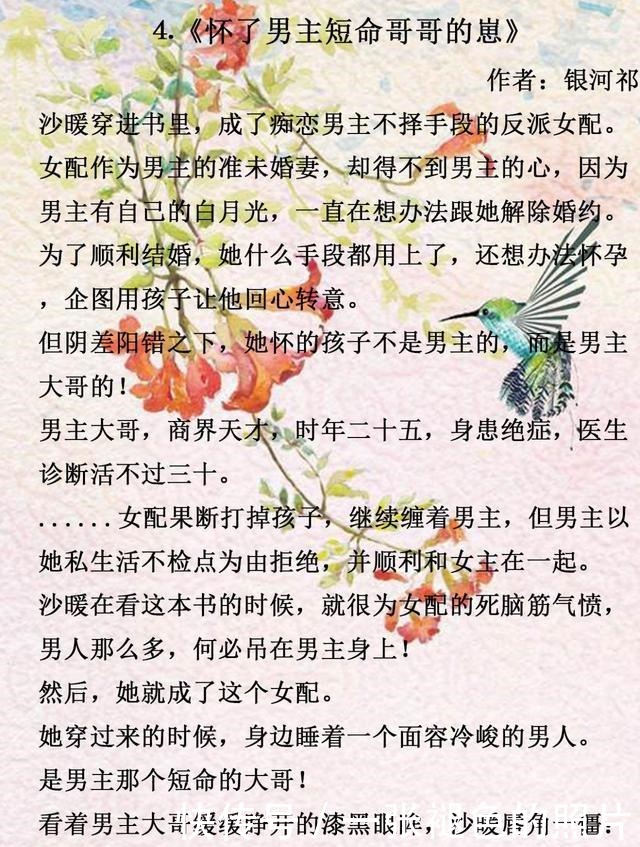 4.《怀了男主短命哥哥的崽》
作者：银河祁
沙暖穿进书里，成了痴恋男主不择手段的反派女配。
女配作为男主的准未婚妻，却得不到男主的心，因为
男主有自己的白月光，一直在想办法跟她解除婚约。
为了顺利结婚，她什么手段都用上了，还想办法怀孕
，企图用孩子让他回心转意。
但阴差阳错之下，她怀的孩子不是男主的，而是男主
大哥的！
男主大哥，商界天才，时年二十五，身患绝症，医生
诊断活不过三十。
......女配果断打掉孩子，继续缠着男主，但男主以
她私生活不检点为由拒绝，并顺利和女主在一起。
沙暖在看这本书的时候，就很为女配的死脑筋气愤，
男人那么多，何必吊在男主身上！
然后，她就成了这个女配。
她穿过来的时候，身边睡着一个面容冷峻的男人。
是男主那个短命的大哥！
看着男主大哥缓缓睁开的漆黑眼眸，沙暖唇角一僵：
快传号/一张褪色的照片